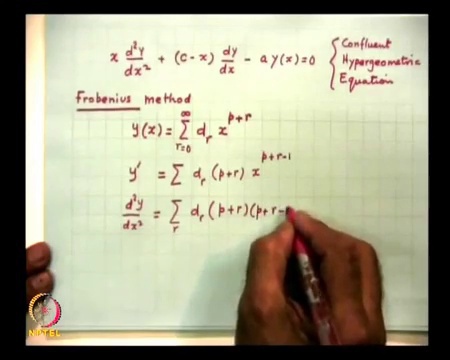 x d²y/dx² + (c-x) dy/dx - a y(x) = 0 { Confluent Hypergeometric Equation
Frobenius method
y(x) = ∑_{r=0}^{∞} d_r x^{p+r}
y' = ∑ d_r (p+r) x^{p+r-1}
d²y/dx² = ∑_r d_r (p+r)(p+r-
NPTEL